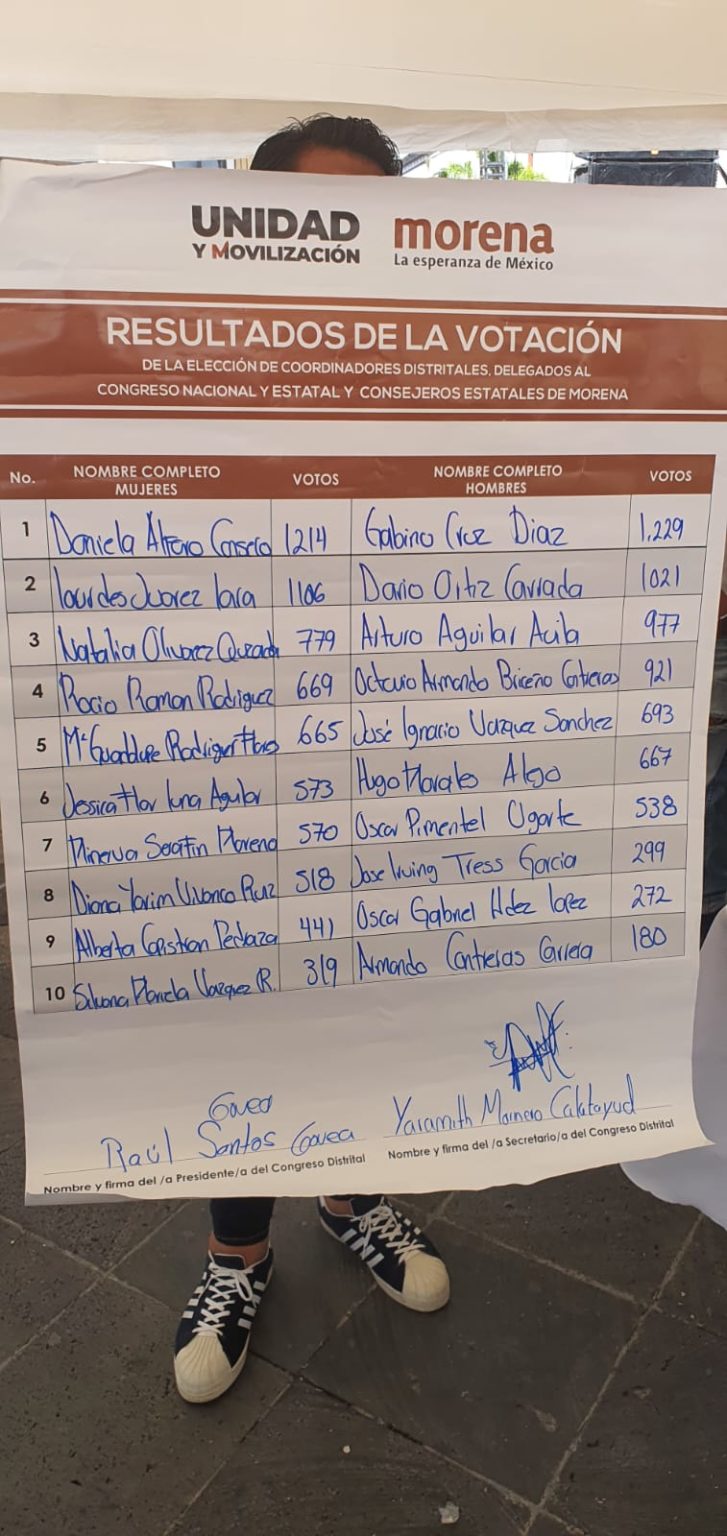 UNIDAD
Y MOVILIZACIÓN
morena
La esperanza de México
RESULTADOS DE LA VOTACIÓN
DE LA ELECCIÓN DE COORDINADORES DISTRITALES, DELEGADOS AL
CONGRESO NACIONAL Y ESTATAL Y CONSEJEROS ESTATALES DE MORENA
No. NOMBRE COMPLETO MUJERES VOTOS NOMBRE COMPLETO HOMBRES VOTOS
1 Daniela 1214 Gabino Cruz Diaz 1,229
2 lourdes Juarez lara 1106 Dario Ortiz 1021
3 Natalia Olivarez 779 Arturo Aguilar 977
4 Rocio Ramon Rodriguez 669 Octavio Armando Briceño Contreras 921
5 Mª Guadalupe Rodriguez Flores 665 José Ignacio Vazquez Sanchez 693
6 Jessica Flor luna Aguilar 573 Hugo Morales 667
7 Minerva Serafin Moreno 570 Oscar Pimentel Ugarte 538
8 Diana Yarim Vivanco Ruiz 518 Jose Irving Tress Garcia 299
9 Alberta Cristian Pedraza 441 Oscar Gabriel Hdez lopez 272
10 Silvana Mariela Vazquez R. 319 Armando Contreras Carrera 180
Govea
Raúl Santos Govea
Nombre y firma del /a Presidente/a del Congreso Distrital
Calatayud
Nombre y firma del /a Secretario/a del Congreso Distrital